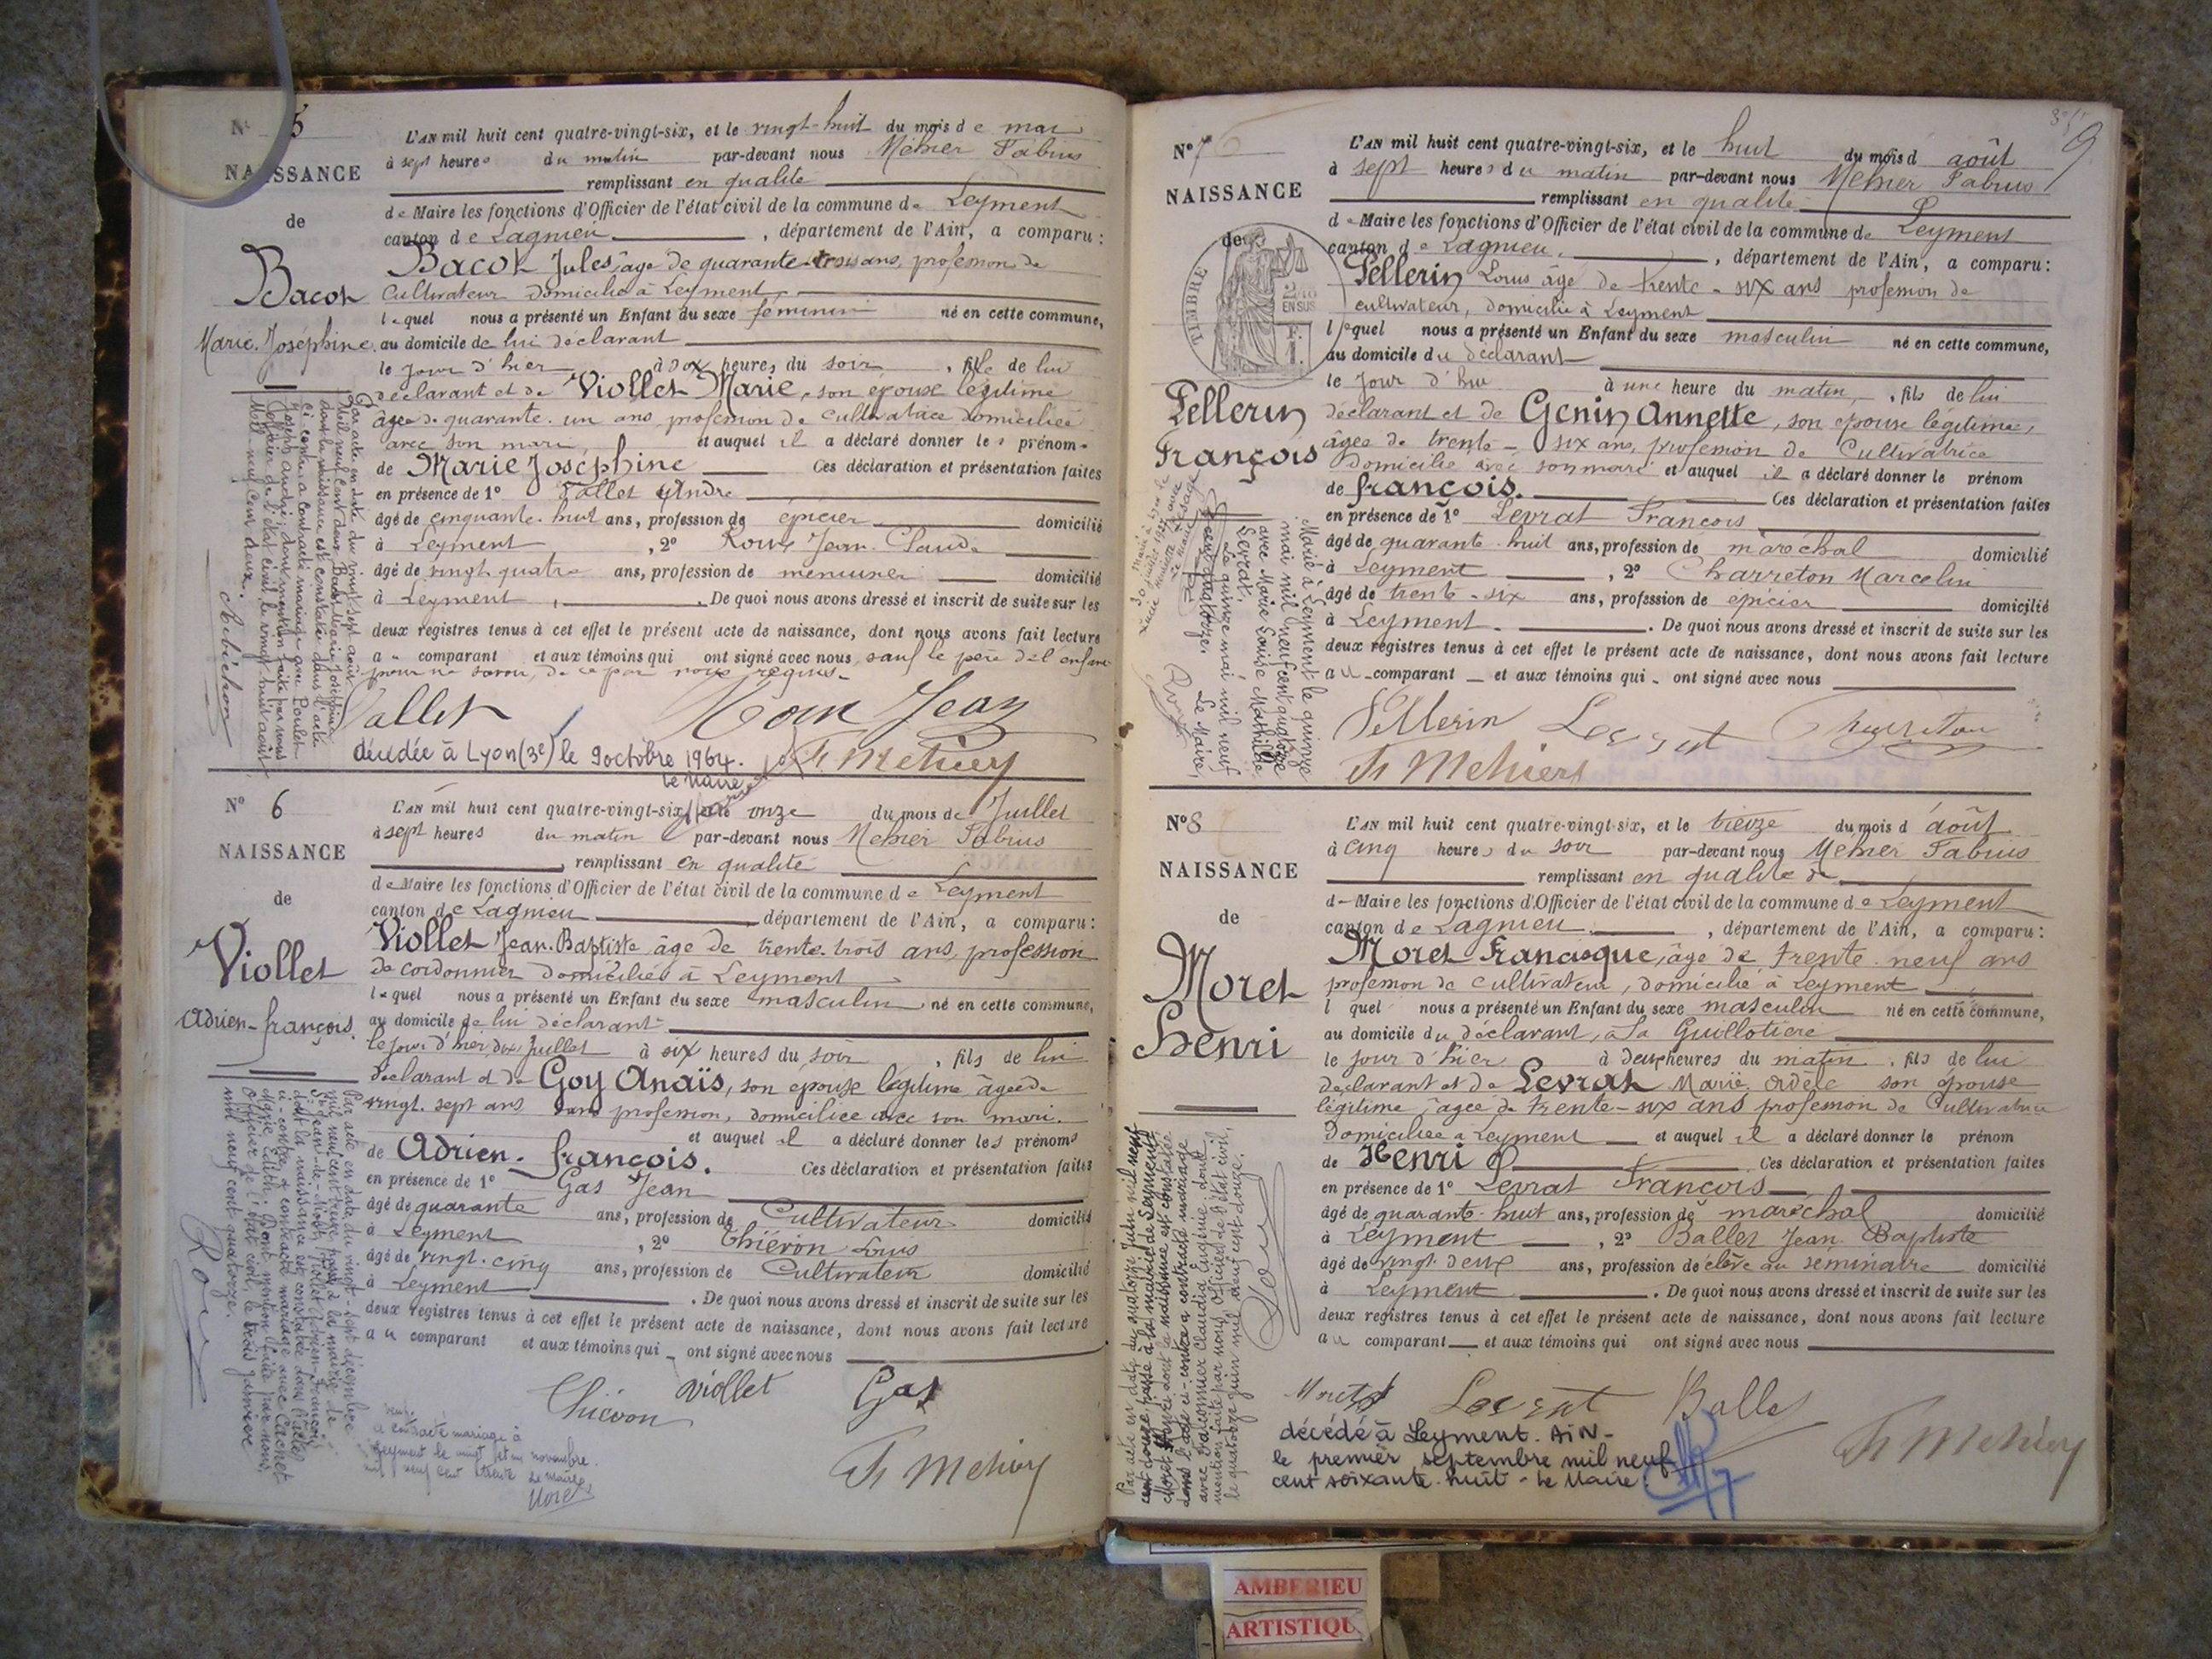 N° 5
NAISSANCE
de
Bacot
Marie. Joséphine.
L'AN mil huit cent quatre-vingt-six, et le vingt-huit du mois de mai
à sept heures du matin par-devant nous Mehier Fabius
remplissant en qualité
de Maire les fonctions d'Officier de l'état civil de la commune de Leyment
canton de Lagnieu, département de l'Ain, a comparu :
Bacot Jules, âgé de quarante-trois ans, profession de
cultivateur domicilié à Leyment,
lequel nous a présenté un Enfant du sexe féminin né en cette commune,
au domicile de lui déclarant
le jour d'hier à dix heures du soir, fille de lui
déclarant et de Viollet Marie, son épouse légitime
âgée de quarante-un ans profession de cultivatrice domiciliée
avec son mari et auquel il a déclaré donner les prénoms
de Marie Joséphine Ces déclaration et présentation faites
en présence de 1° Vallet André
âgé de cinquante-huit ans, profession de épicier domicilié
à Leyment, 2° Roux Jean-Claude
âgé de vingt-quatre ans, profession de menuisier domicilié
à Leyment, De quoi nous avons dressé et inscrit de suite sur les
deux registres tenus à cet effet le présent acte de naissance, dont nous avons fait lecture
au comparant et aux témoins qui ont signé avec nous, sauf le père de l'enfant
pour ne savoir, de ce par nous requis.
Vallet Roux Jean
décédée à Lyon (3e) le 9 octobre 1964.
Le Maire
Fs Mehier
Par acte en date du vingt sept août
mil neuf cent deux, Bacot Marie Joséphine
dont la naissance est constatée dans l'acte
ci-contre a contracté mariage avec Poulet
Joseph André, dont mention faite par nous
officier de l'état civil le vingt huit août
mil neuf cent deux.
N° 6
NAISSANCE
de
Viollet
Adrien-françois.
L'AN mil huit cent quatre-vingt-six, et le onze du mois de Juillet
à sept heures du matin par-devant nous Mehier Fabius
remplissant en qualité
de Maire les fonctions d'Officier de l'état civil de la commune de Leyment
canton de Lagnieu, département de l'Ain, a comparu :
Viollet Jean-Baptiste âgé de trente-trois ans, profession
de cordonnier domiciliés à Leyment
lequel nous a présenté un Enfant du sexe masculin né en cette commune,
au domicile de lui déclarant
le jour d'hier, dix Juillet à six heures du soir, fils de lui
déclarant et de Goy Anaïs, son épouse légitime âgée de
vingt-sept ans sans profession, domiciliée avec son mari.
et auquel il a déclaré donner les prénoms
de Adrien-françois. Ces déclaration et présentation faites
en présence de 1° Gas Jean
âgé de quarante ans, profession de Cultivateur domicilié
à Leyment, 2° Thiévon Louis
âgé de vingt-cinq ans, profession de Cultivateur domicilié
à Leyment. De quoi nous avons dressé et inscrit de suite sur les
deux registres tenus à cet effet le présent acte de naissance, dont nous avons fait lecture
au comparant et aux témoins qui ont signé avec nous
Thiévon Viollet Gas
Fs Mehier
Par acte en date du vingt-sept décembre
mil neuf cent treize, passé à la mairie de
Viollet Adrien-François
dont la naissance est constatée dans l'acte
ci-contre, a contracté mariage avec Cachet
Marie Edith, dont mention faite par nous,
Officier de l'état civil, le trois janvier
mil neuf cent quatorze.
Roux
a contracté mariage à
Leyment le vingt et un novembre
mil neuf cent trente Le Maire
Moret
9
N° 7
NAISSANCE
de
TIMBRE
EN SUS
Pellerin
François
L'AN mil huit cent quatre-vingt-six, et le huit du mois d août
à sept heures du matin par-devant nous Mehier Fabius
remplissant en qualité
de Maire les fonctions d'Officier de l'état civil de la commune de Leyment
canton de Lagnieu, département de l'Ain, a comparu :
Pellerin Louis âgé de trente-six ans profession de
cultivateur, domicilié à Leyment
lequel nous a présenté un Enfant du sexe masculin né en cette commune,
au domicile du déclarant
le jour d'hui à une heure du matin, fils de lui
déclarant et de Genin Annette, son épouse légitime,
âgée de trente-six ans, profession de Cultivatrice
domicilié avec son mari et auquel il a déclaré donner le prénom
de françois. Ces déclaration et présentation faites
en présence de 1° Levrat François
âgé de quarante-huit ans, profession de maréchal domicilié
à Leyment, 2° Charreton Marcelin
âgé de trente-six ans, profession de épicier domicilié
à Leyment. De quoi nous avons dressé et inscrit de suite sur les
deux registres tenus à cet effet le présent acte de naissance, dont nous avons fait lecture
au comparant et aux témoins qui ont signé avec nous
Pellerin Levrat Charreton
Fs Mehier
Marié à Leyment le quinze
mai mil neuf cent quatorze
avec Marie Louise Mathilde
Levrat,
Le quinze mai mil neuf
cent quatorze.
Le Maire,
N° 8
NAISSANCE
de
Moret
Henri
L'AN mil huit cent quatre-vingt-six, et le treize du mois d août
à cinq heures du soir par-devant nous Mehier Fabius
remplissant en qualité de
de Maire les fonctions d'Officier de l'état civil de la commune de Leyment
canton de Lagnieu, département de l'Ain, a comparu :
Moret Francisque, âgé de trente-neuf ans
profession de cultivateur, domicilié à Leyment
l quel nous a présenté un Enfant du sexe masculin né en cette commune,
au domicile du déclarant, à la Guillotière
le jour d'hier à deux heures du matin, fils de lui
déclarant et de Levrat Marie Adèle son épouse
légitime, âgée de trente-six ans profession de Cultivatrice
domiciliée à Leyment et auquel il a déclaré donner le prénom
de Henri Ces déclaration et présentation faites
en présence de 1° Levrat François
âgé de quarante-huit ans, profession de maréchal domicilié
à Leyment, 2° Ballet Jean Baptiste
âgé de vingt-deux ans, profession de élève au séminaire domicilié
à Leyment. De quoi nous avons dressé et inscrit de suite sur les
deux registres tenus à cet effet le présent acte de naissance, dont nous avons fait lecture
au comparant et aux témoins qui ont signé avec nous
Moret Levrat Ballet
Fs Mehier
décédé à Leyment. AIN-
le premier septembre mil neuf
cent soixante-huit - Le Maire :
Par acte en date du quatorze Juin mil neuf
cent douze passé à la mairie de Leyment,
Moret Henri dont la naissance est constatée
dans l'acte ci-contre a contracté mariage
avec Falconnier Claudia Eugénie dont
mention faite par nous, Officier de l'état civil,
le quatorze juin mil neuf cent douze.
AMBERIEU
ARTISTIQU